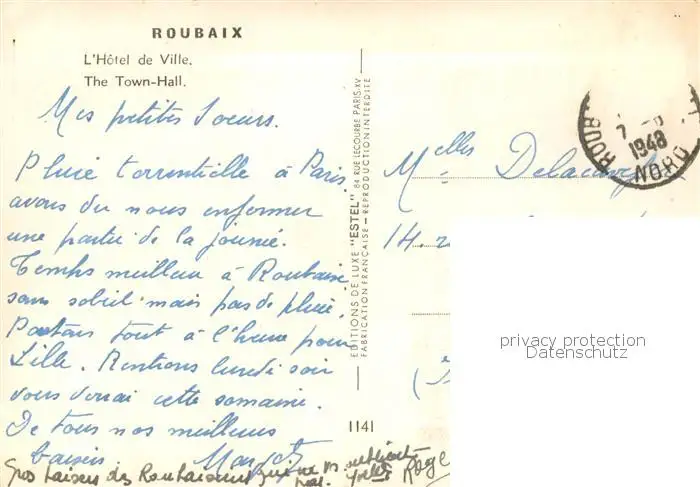 ROUBAIX
L'Hôtel de Ville.
The Town-Hall.
Mes petites Soeurs.
Pluie torrentielle à Paris
avons du nous enfermer
une partie de la journée.
Temps meilleur à Roubaix
sans soleil mais pas de pluie.
Partons tout à l'heure pour
Lille. Rentrons lundi soir
vous verrai cette semaine.
De tous nos meilleurs
baisers Margot
Gros baisers des Roubaisiens qui ne vs oublient
pas. Roge
EDITIONS DE LUXE "ESTEL" 84 RUE LECOURBE PARIS-XV
FABRICATION FRANÇAISE - REPRODUCTION INTERDITE
1141
Melles
14.
ROUB
7
1948
NORD
privacy protection
Datenschutz